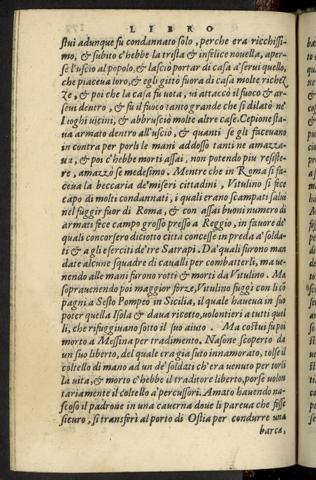 LIBRO
stui adunque fu condannato solo, perche era ricchissi-
mo, & subito c'hebbe la trista & infelice nouella, aper-
se l'uscio al popolo, & lasciò portar di casa a'serui quello,
che piaceua loro, & egli gittò fuora di casa molte richez
ze, & poi che la casa fu uota, ui attaccò il fuoco & ar-
seui dentro, & fu il fuoco tanto grande che si dilatò ne'
luoghi uicini, & abbrusciò molte altre case. Cepione sta-
ua armato dentro all'usciò, & quanti se gli faceuano
in contra per porli le mani addosso tanti ne amazza-
ua, & poi c'hebbe morti assai, non potendo piu resiste-
re, amazzò se medesimo. Mentre che in Roma si fa-
ceua la beccaria de'miseri cittadini, Vitulino si fece
capo di molti condannati, i quali erano scampati salui
nel fuggir fuor di Roma, & con assai buoni numero di
armati fece campo grosso presso a Reggio, in fauore de'
quali concorsero diciotto città concesse in preda a'solda-
ti & a gli eserciti de'tre Satrapi. Da'quali furono man
date alcune squadre di caualli per combatterli, ma ue-
nendo alle mani furono rotti & morti da Vitulino. Ma
soprauenendo poi maggior forze, Vitulino fuggì con li cō
pagni a Sesto Pompeo in Sicilia, il quale haueua in suo
poter quella Isola & daua ricetto, uolontieri a tutti qui
li, che rifuggiuano sotto il suo aiuto. Ma costui fu poi
morto a Messina per tradimento. Nasone scoperto da
un suo liberto, del quale era gia suto innamorato, tolse il
coltello di mano ad un de'soldati ch'era uenuto per torli
la uita, & morto c'hebbe il traditore liberto, porse uolon
tariamente il coltello a'percussori. Amato hauendo na-
scoso il padrone in una cauerna doue li pareua che fusse
sicuro, si transferì al porto di Ostia per condurre una
barca,